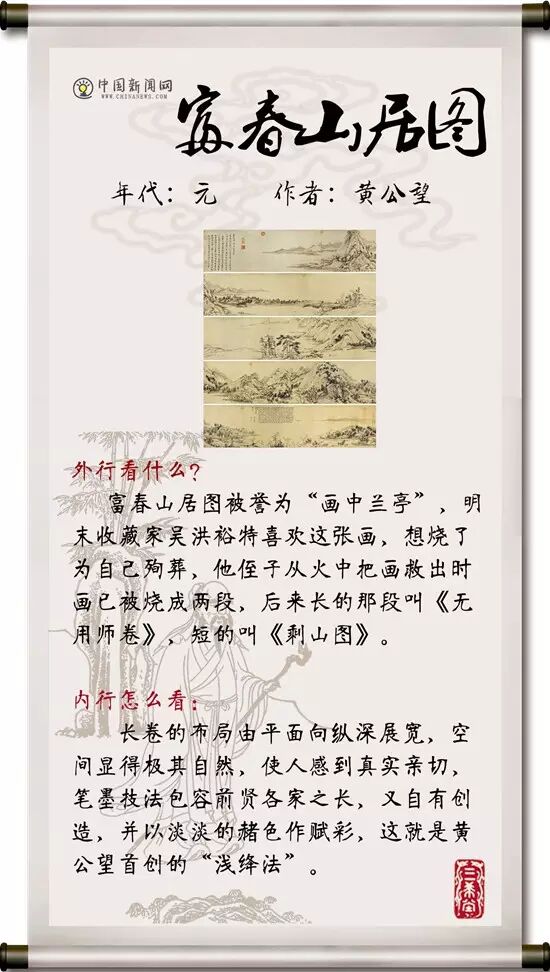 中国新闻网
WWW.CHINANEWS.COM
富春山居图
年代：元 作者：黄公望
外行看什么？
富春山居图被誉为“画中兰亭”，明
末收藏家吴洪裕特喜欢这张画，想烧了
为自己殉葬，他侄子从火中把画救出时
画已被烧成两段，后来长的那段叫《无
用师卷》，短的叫《剩山图》。
内行怎么看：
长卷的布局由平面向纵深展宽，空
间显得极其自然，使人感到真实亲切，
笔墨技法包容前贤各家之长，又自有创
造，并以淡淡的赭色作赋彩，这就是黄
公望首创的“浅绛法”。